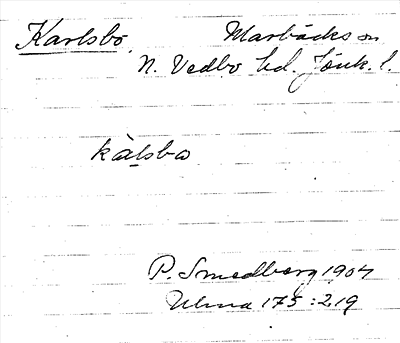 Karlsbo. Marbäcks sn
N. Vedbo hd. Jönk. l.
kàlsba
P. Smedberg 1904
Ulma 175:219